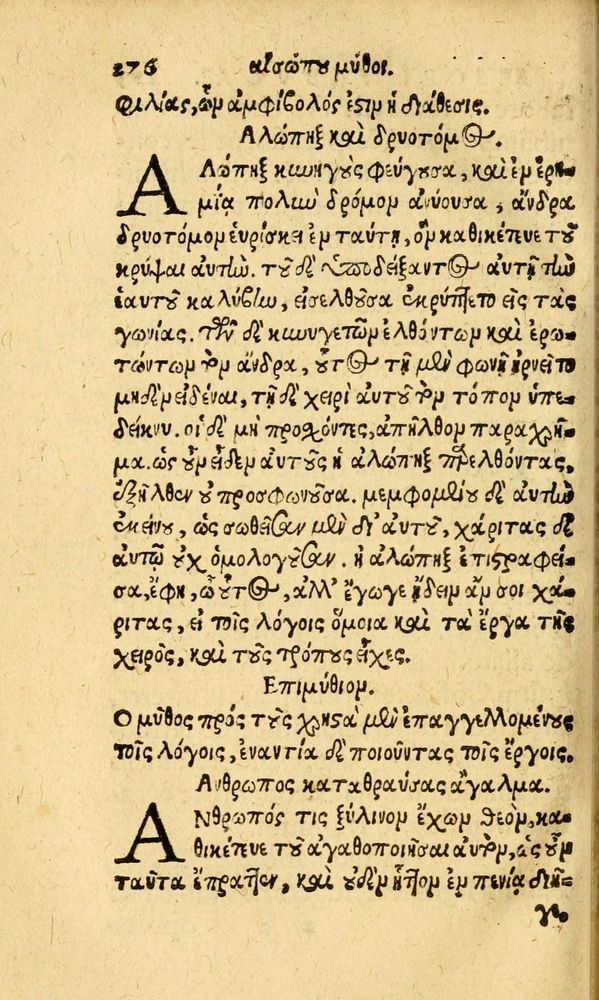 276 αἰσώπου μῦθοι.
φιλίας, ὧν ἀμφίβολός ἐστιν ἡ διάθεσις.
Ἀλώπηξ καὶ δρυοτόμος.
ΑΛώπηξ κυνηγοὺς φεύγουσα, καὶ ἐν ἐρη-
μίᾳ πολὺν δρόμον ἀνύουσα, ἄνδρα
δρυοτόμον εὑρίσκει ἐν ταύτῃ, ὃν καθικέτευε τοῦ
κρύψαι αὐτήν. τοῦ δὲ ὑποδείξαντος αὐτῇ τὴν
ἑαυτοῦ καλύβην, εἰσελθοῦσα ἐκρύπτετο εἰς τὰς
γωνίας. τῶν δὲ κυνηγετῶν ἐλθόντων καὶ ἐρω-
τώντων τὸν ἄνδρα, οὗτος τῇ μὲν φωνῇ ἠρνεῖτο
μηδὲν εἰδέναι, τῇ δὲ χειρὶ αὐτοῦ τὸν τόπον ὑπε-
δείκνυ. οἱ δὲ μὴ προσχόντες, ἀπῆλθον παραχρῆ-
μα. ὡς οὖν εἶδεν αὐτοὺς ἡ ἀλώπηξ παρελθόντας,
ἐξῆλθεν οὐ προσφωνοῦσα. μεμφομένου δὲ αὐτὴν
ἐκείνου, ὡς σωθεῖσαν μὲν δι' αὐτοῦ, χάριτας δὲ
αὐτῷ οὐχ ὁμολογοῦσαν. ἡ ἀλώπηξ ἐπιστραφεῖ-
σα, ἔφη, ὦ οὗτος, ἀλλ' ἔγωγε ᾔδειν ἄν σοι χά-
ριτας, εἰ τοῖς λόγοις ὅμοια καὶ τὰ ἔργα τῆς
χειρὸς, καὶ τοὺς τρόπους εἶχες.
Ἐπιμύθιον.
Ὁ μῦθος πρὸς τοὺς χρηστὰ μὲν ἐπαγγελλομένους
τοῖς λόγοις, ἐναντία δὲ ποιοῦντας τοῖς ἔργοις.
Ἄνθρωπος καταθραύσας ἄγαλμα.
ΑΝθρωπός τις ξύλινον ἔχων θεὸν, κα-
θικέτευε τοῦ ἀγαθοποιῆσαι αὐτὸν, ὡς οὖν
ταῦτα ἔπραττεν, καὶ οὐδὲν ἧττον ἐν πενίᾳ διῆ-
γε.